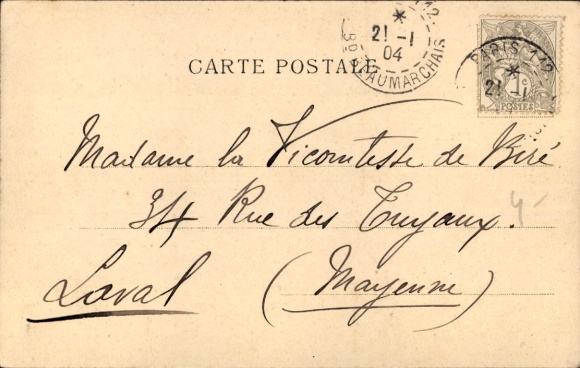 CARTE POSTALE
21 -1
04
BD BEAUMARCHAIS
PARIS 112
21 -1
POSTES
Madame la Vicomtesse de Biré
34 Rue des Tuyaux.
Laval (Mayenne)